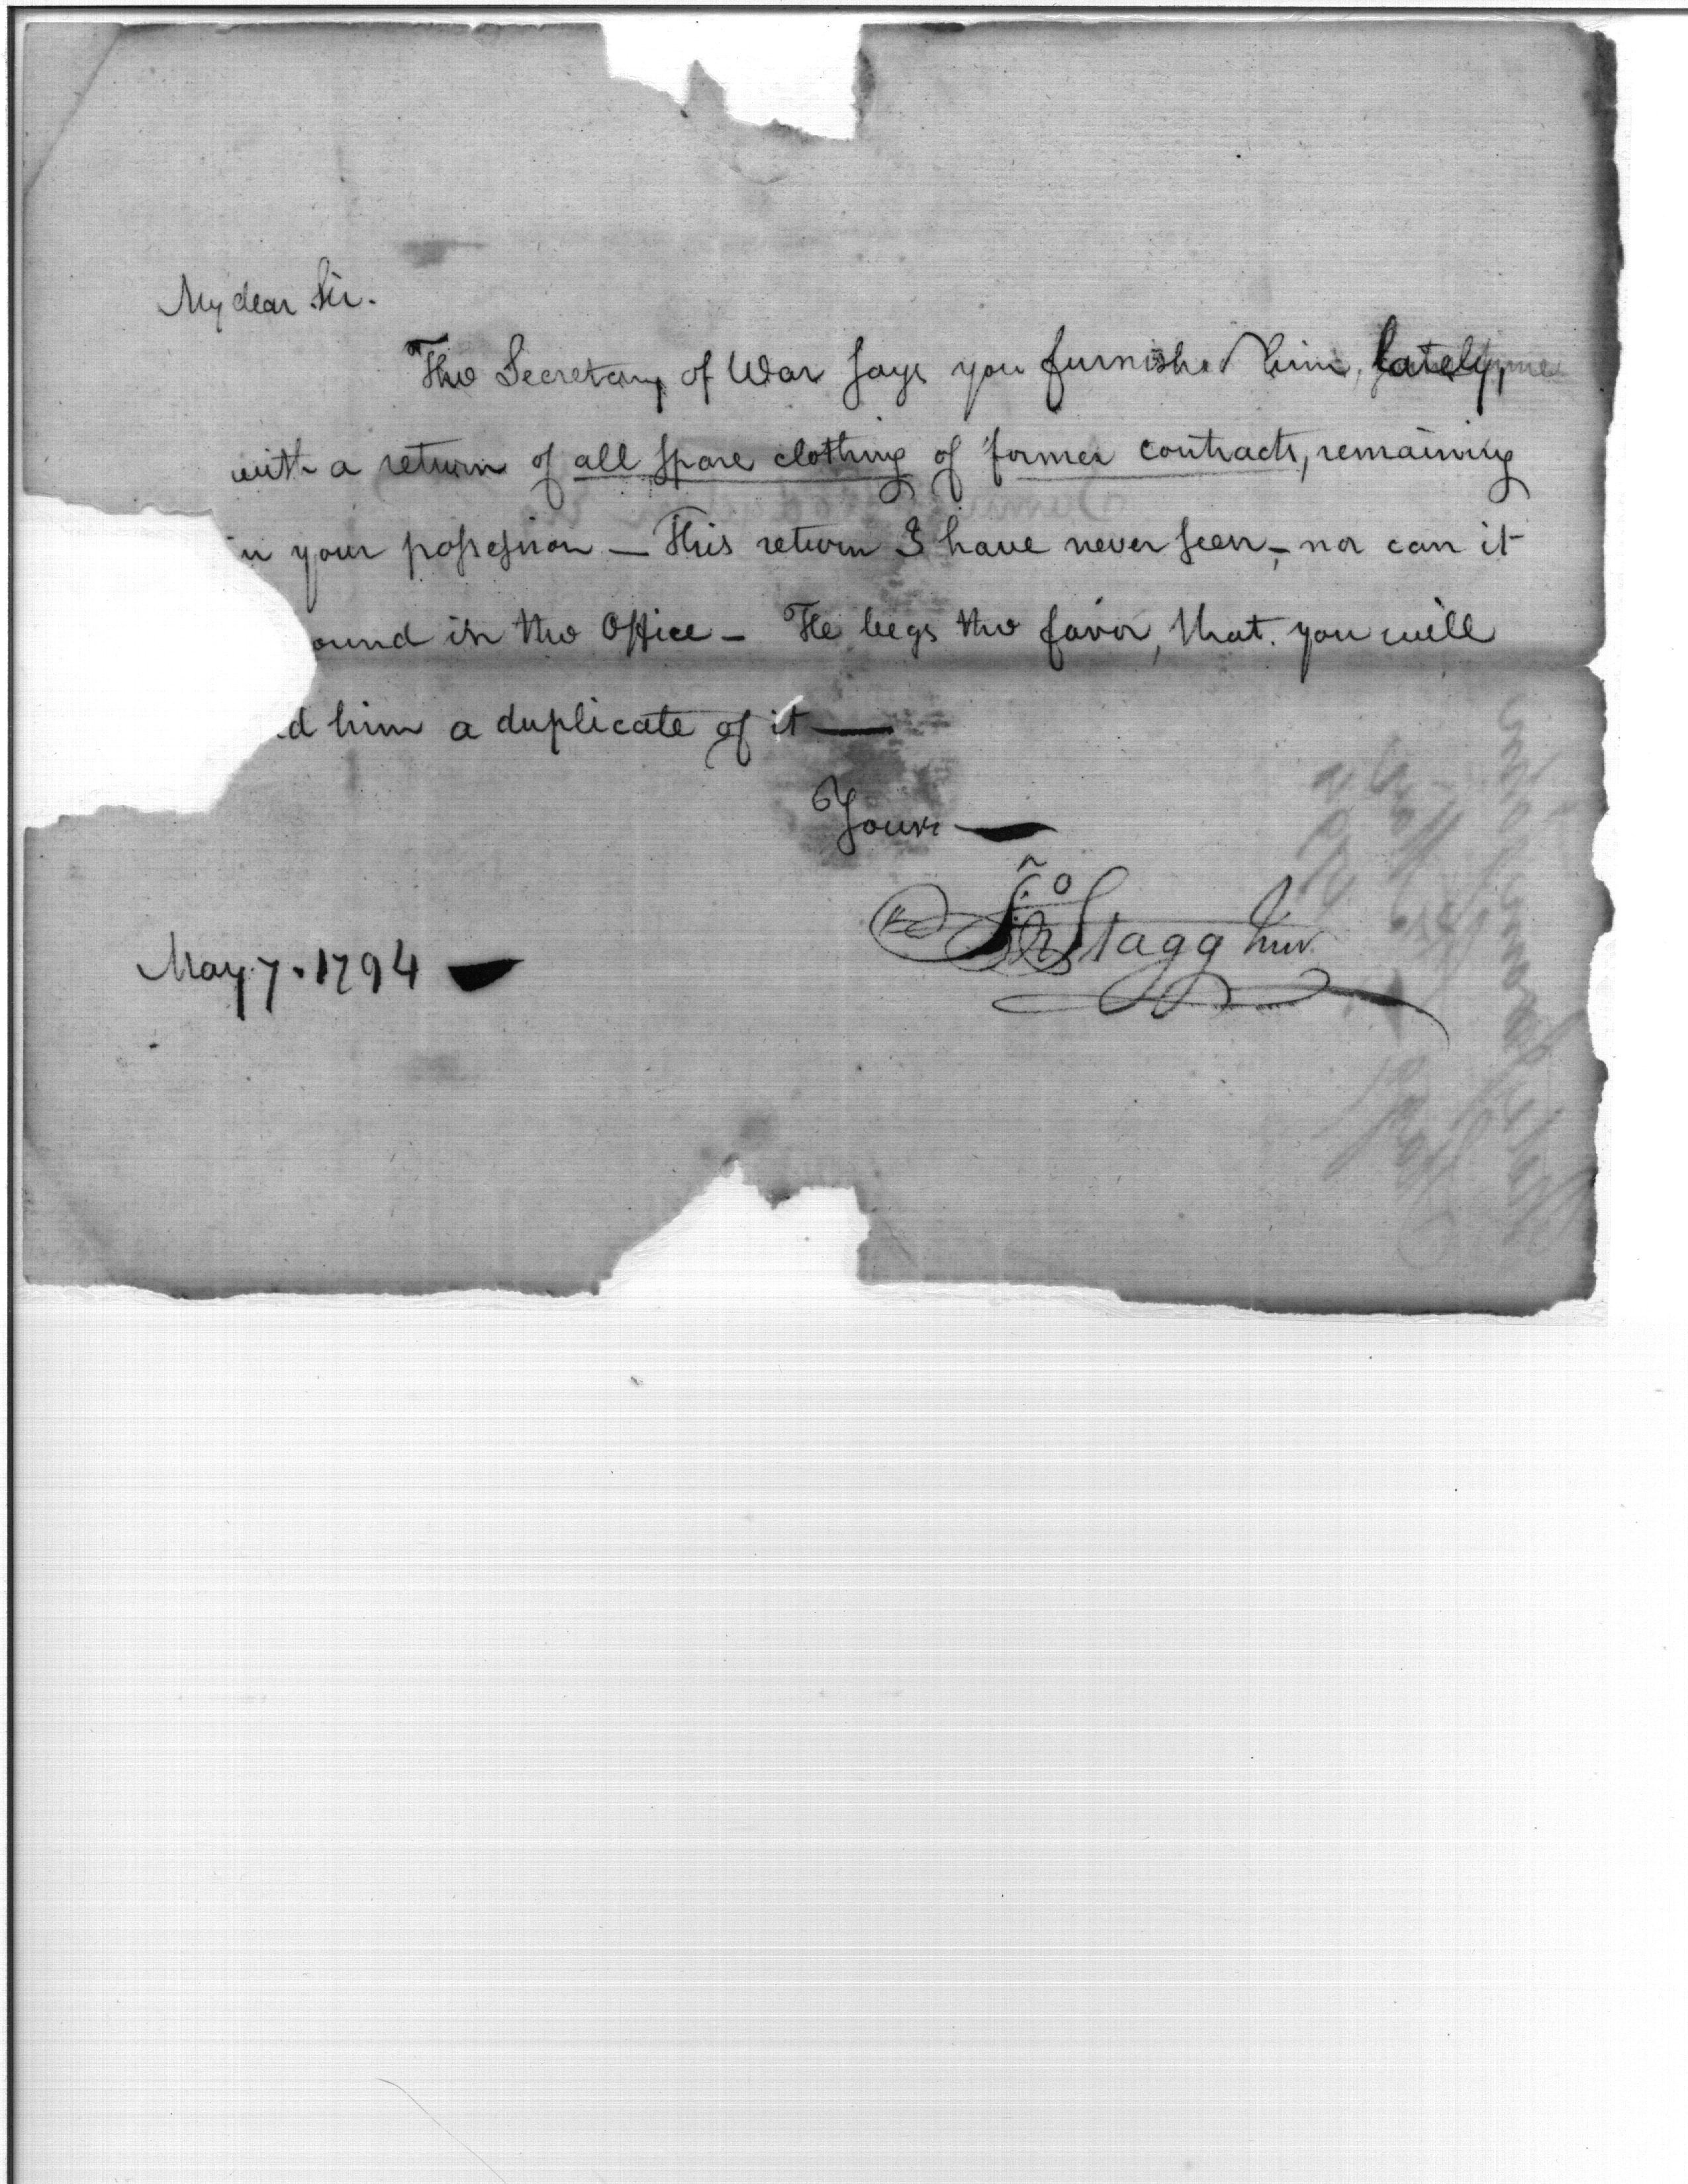 My dear Sir.
The Secretary of War says you furnished him, lately,
with a return of all spare clothing of former contracts, remaining
in your possession — This return I have never seen, — nor can it
ound in the Office — He begs the favor, that you will
d him a duplicate of it —
Yours —
Jno Stagg Junr
May 7. 1794 —